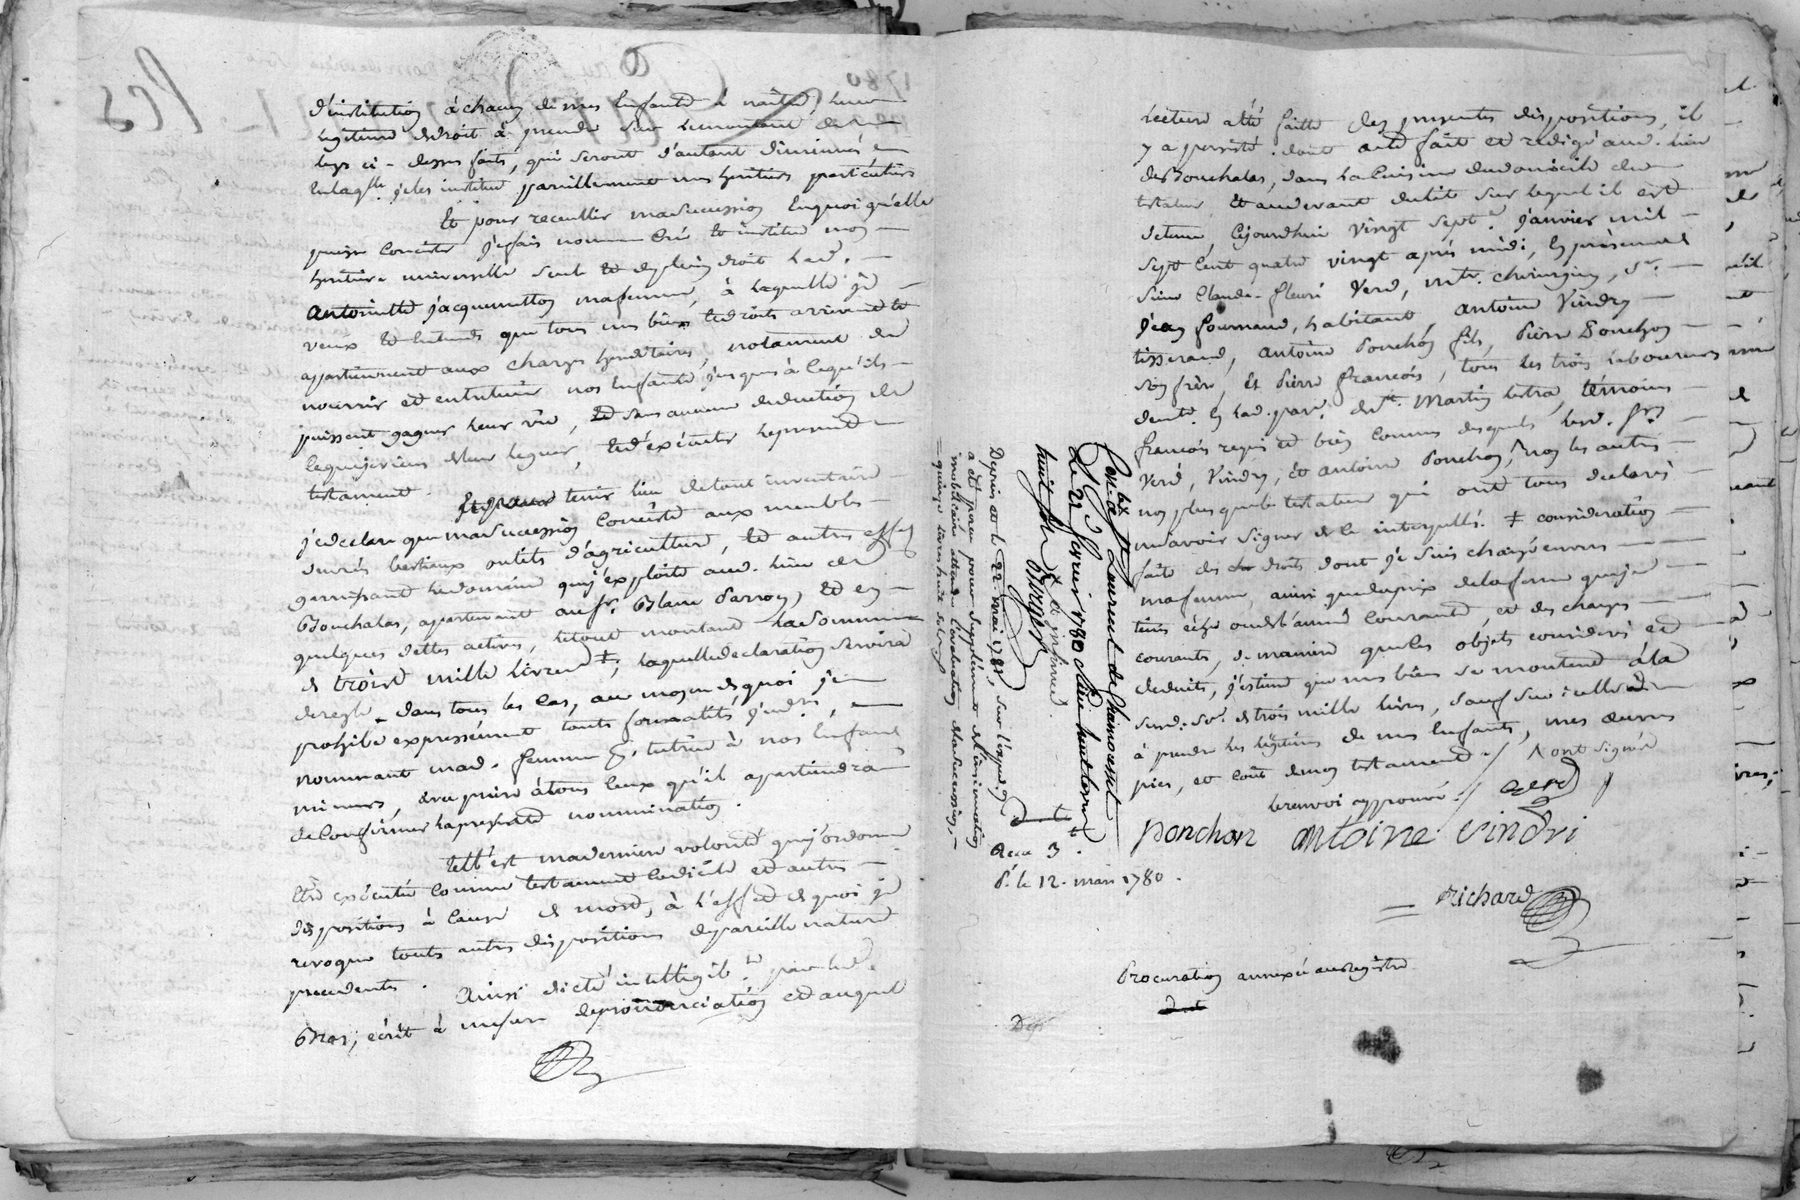 d'institution à chacun de mes Enfants à naitre, leur
legitime de droit à prendre sur le montant de
legs ci-dessus faits, qui seront d'autant diminués
en laqlle je les institue pareillement mes heritiers particuliers
Et pour receuillir ma succession En quoi qu'elle
puisse Consister j'e fais nomme Crée et institue mon
heritiere universelle seule et de plein droit lad.
antoinette jacquemetton ma femme, à laquelle je
veux et Entends que tous mes biens et droits arrivent et
appartiennent aux charges hereditaires, notament de
nourrir et entretenir nos Enfants jusques à ce qu'ils
puissent gagner leur vie, et sans aucune deduction de
ce que je viens de leur leguer, et d'exécuter le present
testament.
Et pour tenir lieu de tout inventaire
je declare que ma succession Consiste aux meubles
denrés bestiaux outils d'agriculture, et autres effets
garnissant le domaine que j'exploite aud. lieu de
Bouchalas, appartenant au sr. Blaise Parron, et en
quelques dettes actives, le tout montant la somme
de trois mille livres ‡; laquelle declaration servira
de regle dans tous les cas, au moyen de quoi je
prohibe expressément toutes formalités, j'udres,
nommant mad. femme tutrice à nos Enfans
mineurs, à tous Ceux qu'il apartiendra
de Confirmer la presente nomination.
Tell'est ma derniere volonté que j'ordonne
Etre exécutée Comme testament Codicile et autres
dispositions à Cause de mort, à l'effet de quoi je
revoque toutes autres dispositions de pareille nature
precedentes. Ainsi dicté intelligiblt par led.
Bras, écrit à mesure de prononciation et auquel
lecture a été faitte des presentes dispositions, il
y a persisté. dont acte fait et redigé aud. lieu
de Bouchalas, dans la Cuisine du domicile du
testateur Et au devant du lit sur lequel il est
detenu, Cejourdhui vingt sept j'anvier mil
sept Cent quatre vingt après midi, En présence de
sieur Claude-fleuri Verd, mtre. chirurgien, Sr.
jean fournand, habitant antoine Vindry
tisserand, antoine Ponchon fils, Pierre Ponchon
son frère, et Pierre françois, tous les trois laboureurs
demts. En lad. parr. de St. Martin lestra, témoins
françois requis et bien Connus desquels lesd. srs.
Verd, Vindry, et antoine Ponchon, non les autres
non plus que le testateur qui ont tous declaré
ne savoir signer de ce interpellés. ‡ consideration
faite des droits dont je suis chargé envers
ma femme, ainsi que du prix de la ferme que je
tiens échu ou de l'année Courante, et des charges
courantes, de maniere que les objets considerés et
deduits, j'estime que mes biens se montent à la
susd. se. de trois mille livres, sauf sur icelle
à prendre les légitimes de mes Enfants, mes œuvres
pies, et Coût de mon testament // ont signés
le renvoi approuvé // Verd
ponchon antoine vindri
Richard
Procuration annexée au registre
Con.lé à St Laurent de Chamousset
Le 22 fevrier 1780 Reçu
huit sols
Burget
Depuis et le 22 mai 1781, sur l'expedition
a été perçu pour supplément de l'insinuation
mobiliaire attendu l'evaluation de la succession
quinze livres huit sols
Recu 3
P. le 12. mars 1780.